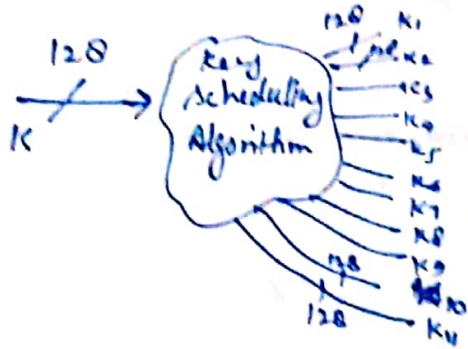 128
K
Key
Scheduling
Algorithm
128 K1
128 K2
K3
K4
K5
K6
K7
K8
K9
128 10
128 K11